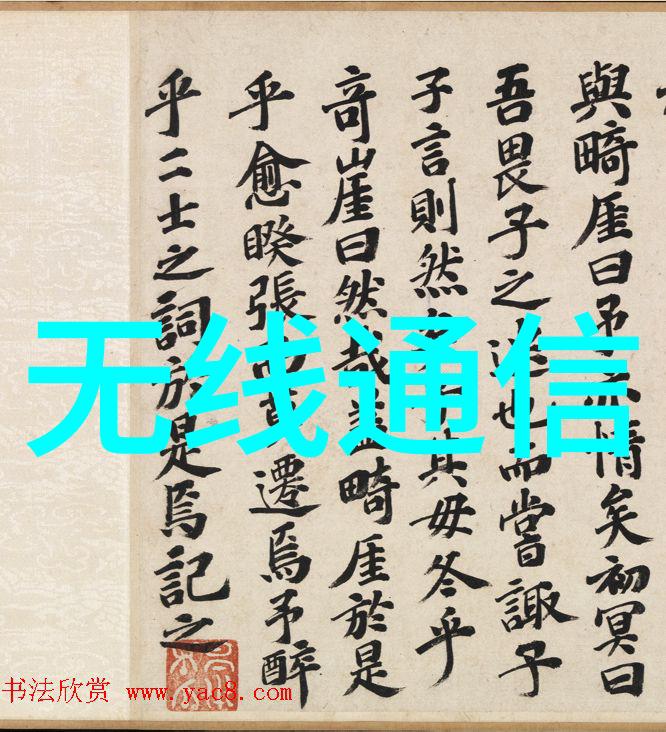 與畸厓曰予惰矣初冥曰
吾畏子之也而嘗諏子
子言則然其毋冬乎
奇崖曰然哉蓋畸厓於是
乎愈睽張遷焉予醉
乎二士之詞於是焉記之
无线通信
书法欣赏 www.yac8.com